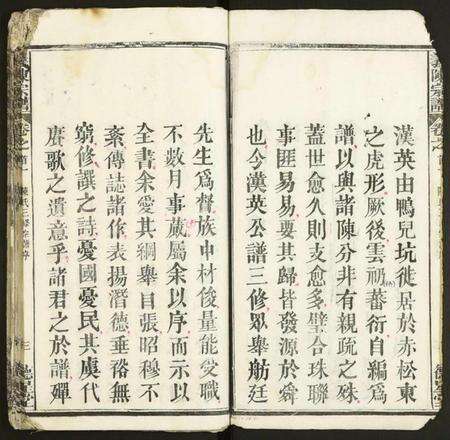 漢英由鴨兒坑徙居於赤松東
之虎形厥後雲礽蕃衍自編爲
譜以與諸陳分非有親疏之殊
蓋世愈久則支愈多璧合珠聯
匪易易要其歸皆發源於舜
也今漢英公譜三修眾舉舫廷
先生爲督族中材俊量能受職
不數月事蕆屬余以序而示以
全書余愛其綱舉目張昭穆不
紊傳誌諸作表揚潛德垂裕無
窮修譔之詩憂國憂民其虞代
賡歌之遺意乎諸君之於譜殫
陳宗譜
卷之